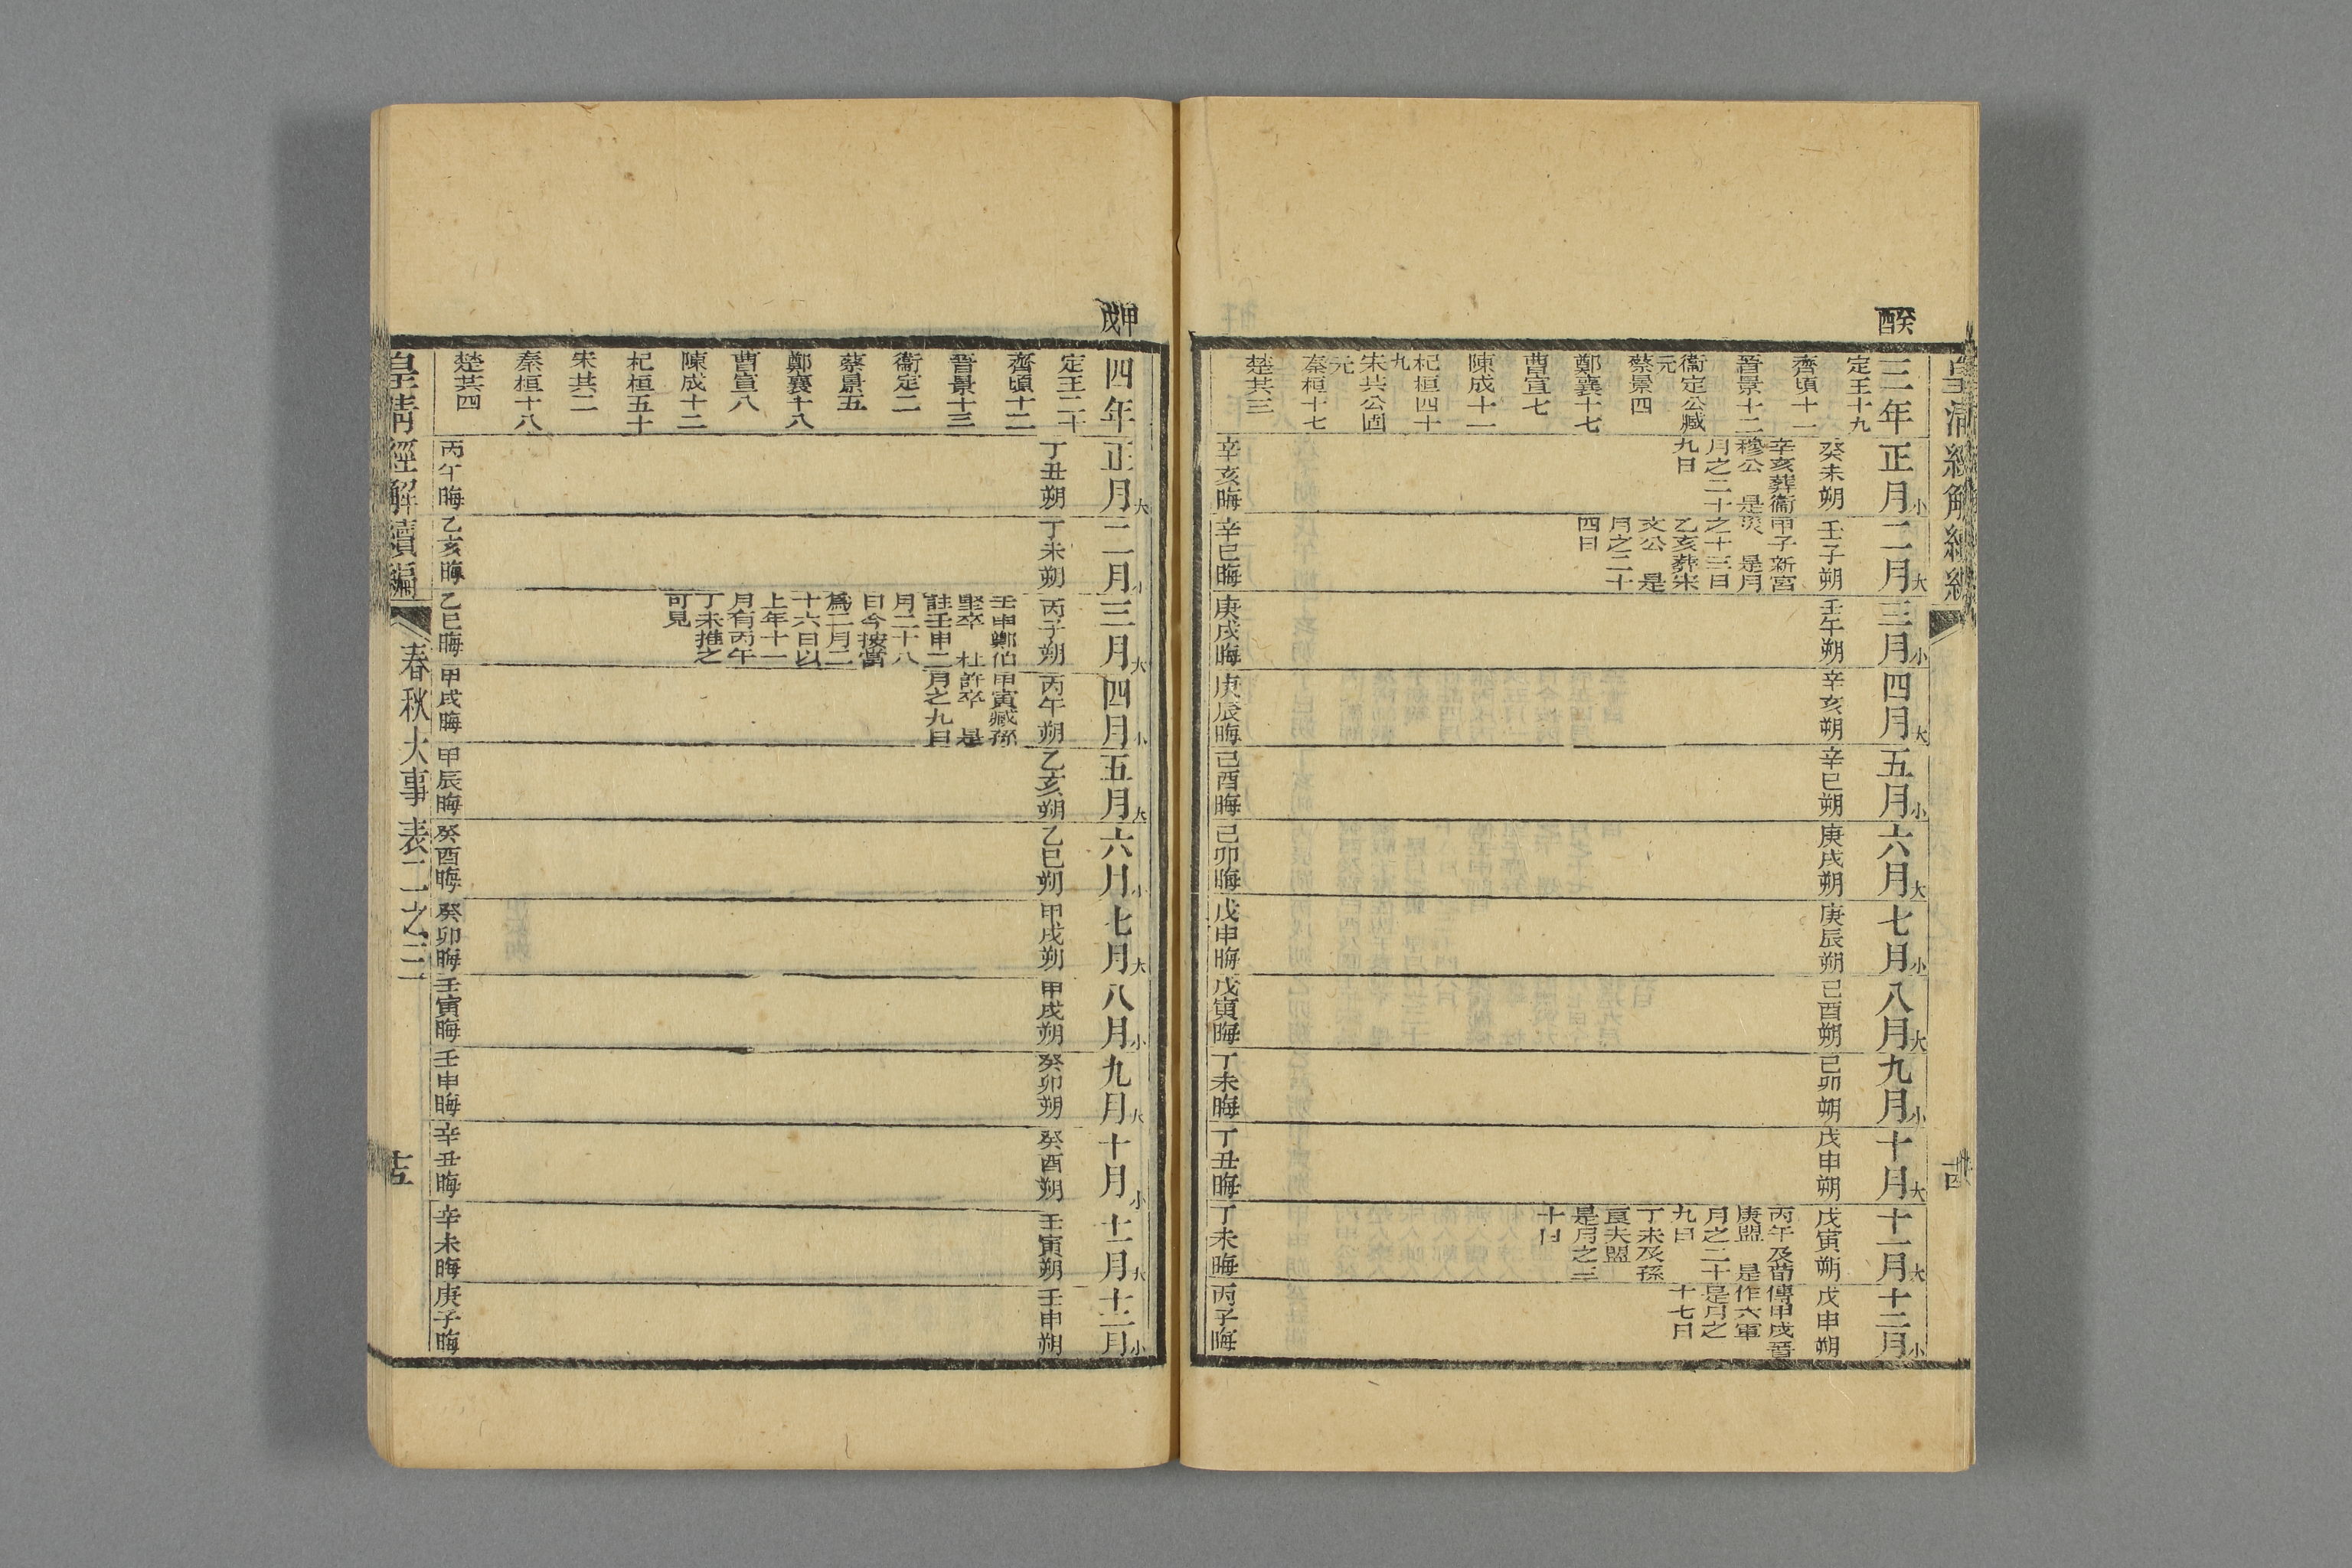 癸酉
三年
定王十九
齊頃十一
晉景十二
衞定公臧元
蔡景四
鄭襄十七
曹宣七
陳成十一
杞桓四十九
宋共公固元
秦桓十七
楚共三
正月小
癸未朔
辛亥葬衞
穆公 是
月之二十
九日
辛亥晦
二月大
壬子朔
甲子新宮
災 是月
之十三日
乙亥葬宋
文公 是
月之二十
四日
辛巳晦
三月小
壬午朔
庚戌晦
四月大
辛亥朔
庚辰晦
五月小
辛巳朔
己酉晦
六月大
庚戌朔
己卯晦
七月小
庚辰朔
戊申晦
八月大
己酉朔
戊寅晦
九月小
己卯朔
丁未晦
十月大
戊申朔
丁丑晦
十一月大
戊寅朔
丙午及荀
庚盟 是
月之二十
九日
丁未及孫
良夫盟
是月之三
十日
丁未晦
十二月小
戊申朔
傳甲戌晉
作六軍
是月之
十七日
丙子晦
甲戌
四年
定王二十
齊頃十二
晉景十三
衞定二
蔡景五
鄭襄十八
曹宣八
陳成十二
杞桓五十
宋共二
秦桓十八
楚共四
正月大
丁丑朔
丙午晦
二月小
丁未朔
乙亥晦
三月大
丙子朔
壬申鄭伯
堅卒 杜
註壬申二
月二十八
日今按當
爲二月二
十六日以
上年十一
月有丙午
丁未推之
可見
乙巳晦
四月小
丙午朔
甲寅臧孫
許卒 是
月之九日
甲戌晦
五月大
乙亥朔
甲辰晦
六月小
乙巳朔
癸酉晦
七月大
甲戌朔
癸卯晦
八月小
甲戌朔
壬寅晦
九月大
癸卯朔
壬申晦
十月小
癸酉朔
辛丑晦
十一月大
壬寅朔
辛未晦
十二月小
壬申朔
庚子晦
皇清經解續編
春秋大事表二之三